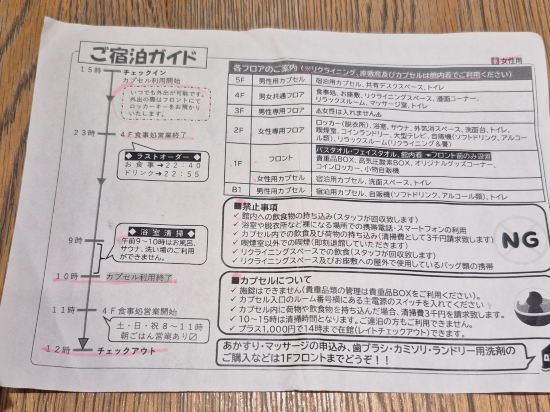 ご宿泊ガイド
女性用
15時
チェックイン
カプセル利用開始
いつでも外出が可能です。
外出の際はフロントにて
ロッカーキーをお預かり
いたします。
23時
4F食事処営業終了
◆ラストオーダー◆
お食事➔22:40
ドリンク➔22:55
◆浴室清掃◆
午前9~10時はお風呂、
サウナ、洗い場のご利用
ができません。
9時
10時
カプセル利用終了
11時
4F食事処営業開始
土・日・祝 8~11時
朝ごはん営業あり
12時
チェックアウト
各フロアのご案内(※リクライニング、座敷席及びカプセルは館内着でご利用ください。)
5F 男性用カプセル 宿泊用カプセル、共有デスクスペース、トイレ
4F 男女共通フロア 食事処、お座敷、リクライニングスペース、漫画コーナー、
リラックスルーム、マッサージ室、トイレ
3F 男性専用フロア ⚠女性は入れません⚠
2F 女性専用フロア ロッカー(脱衣所)、浴室、サウナ、外気浴スペース、洗面台、トイレ、
喫煙室、コインランドリー、大型テレビ、自販機(ソフトドリンク、アル
コール類)、リラックスルーム(リクライニング8畳)
1F フロント バスタオル・フェイスタオル、館内着 ☚フロント前のみ設置
貴重品BOX、高気圧酸素BOX、オリジナルグッズコーナー、
コインロッカー、小物自販機
女性用カプセル 宿泊用カプセル、洗面スペース、トイレ
B1 男性用カプセル 宿泊用カプセル、自販機(ソフトドリンク、アルコール類)、トイレ
■禁止事項
✓ 館内への飲食物の持ち込み(スタッフが回収致します)
✓ 浴室や脱衣所など裸になる場所での携帯電話・スマートフォンの利用
✓ カプセル内での飲食及び荷物の持ち込み(清掃費として3千円請求致します)
✓ 喫煙室以外での喫煙(即刻退館していただきます)
✓ リクライニングスペースでの飲食(スタッフが回収致します)
✓ リクライニングスペース及びお座敷への屋外で使用しているバッグ類の携帯
NG
■カプセルについて
✓ 施錠はできません(貴重品類の管理は貴重品BOXをご利用ください)
✓ カプセル入口のルーム番号横にある主電源のスイッチを入れてください
✓ カプセル内に荷物や飲食物を持ち込んだ場合、清掃費3千円を請求致します。
✓ 10~15時は清掃時間となります。ご連泊の方もご利用できません。
✓ プラス1,000円で14時まで在館(レイトチェックアウト)できます。
あかすり・マッサージの申込み、歯ブラシ・カミソリ・ランドリー用洗剤の
ご購入などは1Fフロントまでどうぞ!!